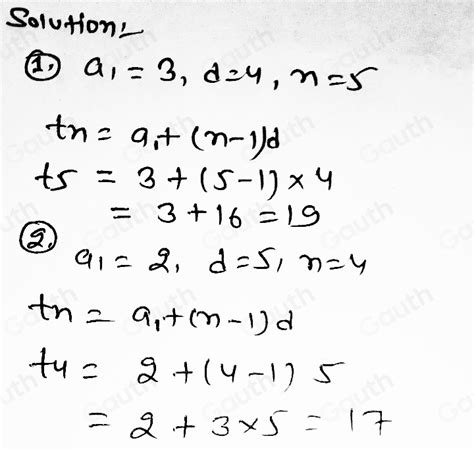 Solution:-
①. a₁ = 3, d=4, n=5
tn = a₁+(n-1)d
t5 = 3+(5-1)×4
= 3+16=19
②. a₁ = 2, d=5, n=4
tn = a₁+(n-1)d
t4 = 2+(4-1) 5
= 2+3×5=17